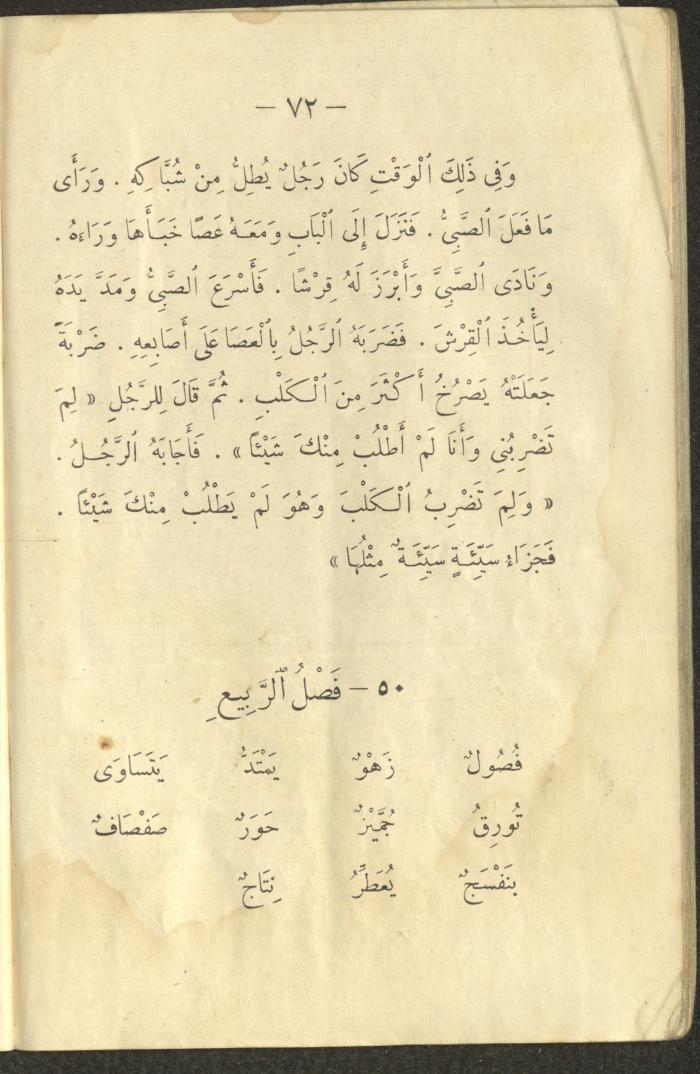 — ٧٢ —
وَفِي ذَلِكَ ٱلْوَقْتِ كَانَ رَجُلٌ يُطِلُّ مِنْ شُبَّاكِهِ . وَرَأَى
مَا فَعَلَ ٱلصَّبِيُّ . فَنَزَلَ إِلَى ٱلْبَابِ وَمَعَهُ عَصًا خَبَأَهَا وَرَاءَهُ .
وَنَادَى ٱلصَّبِيَّ وَأَبْرَزَ لَهُ قِرْشًا . فَأَسْرَعَ ٱلصَّبِيُّ وَمَدَّ يَدَهُ
لِيَأْخُذَ ٱلْقِرْشَ . فَضَرَبَهُ ٱلرَّجُلُ بِٱلْعَصَا عَلَى أَصَابِعِهِ . ضَرْبَةً
جَعَلَتْهُ يَصْرُخُ أَكْثَرَ مِنَ ٱلْكَلْبِ . ثُمَّ قَالَ لِلرَّجُلِ « لِمَ
تَضْرِبُنِي وَأَنَا لَمْ أَطْلُبْ مِنْكَ شَيْئًا » . فَأَجَابَهُ ٱلرَّجُلُ .
« وَلِمَ تَضْرِبُ ٱلْكَلْبَ وَهُوَ لَمْ يَطْلُبْ مِنْكَ شَيْئًا .
فَجَزَاءُ سَيِّئَةٍ سَيِّئَةٌ مِثْلُهَا »
٥٠ — فَصْلُ ٱلرَّبِيعِ
فُصُولٌ زَهْوٌ يَمْتَدُّ يَتَسَاوَى
تُورِقُ جُمَّيْزٌ حَوَرٌ صَفْصَافٌ
بَنَفْسَجٌ يُعَطِّرُ نِتَاجٌ